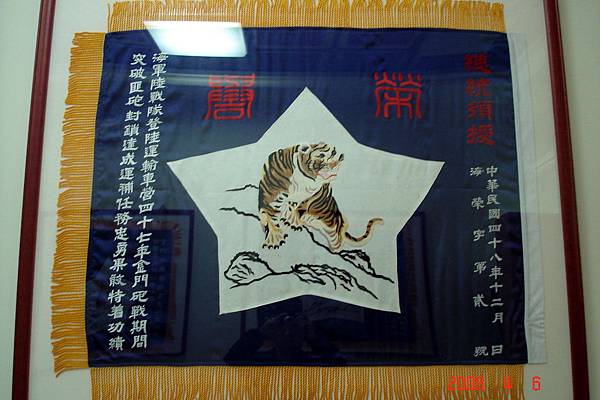 總統頒授
榮譽
中華民國四十八年十二月 日
海榮字第貳號
海軍陸戰隊登陸運輸車營四十七年金門砲戰期間
突破匪砲封鎖達成運補任務忠勇果敢特著功績
2009 4 6